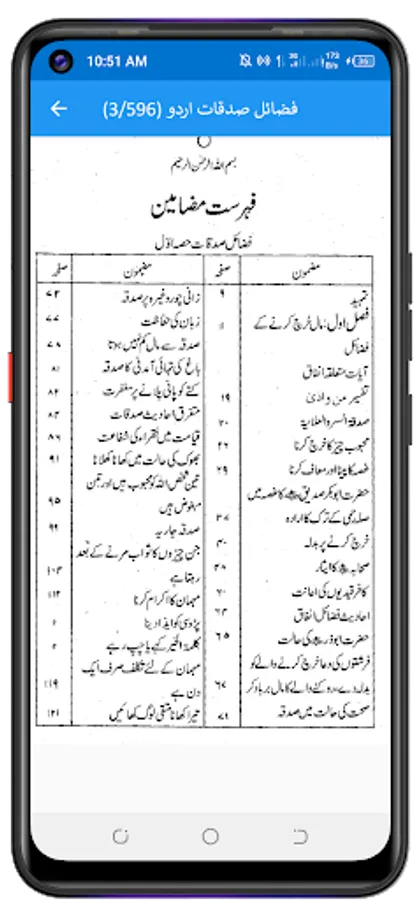 10:51 AM
فضائل صدقات اردو (3/596)
بسم اللہ الرحمٰن الرحیم
فہرست مضامین
فضائل صدقات حصہ اوّل
مضمون صفحہ
تمہید ۹
فصل اول: مال خرچ کرنے کے ۱۱
فضائل
آیات متعلقہ انفاق
تفسیر من و اذیٰ ۱۹
صدقۃ السر والعلانیہ ۲۰
محبوب چیز کا خرچ کرنا ۲۶
غصہ کا پینا اور معاف کرنا ۲۹
حضرت ابوبکر صدیق کا غصہ میں
صلہ رحمی کے ترک کا ارادہ ۳۷
خرچ کرنے پر بدلہ ۴۰
صحابہ کا ایثار
کافر قیدیوں کی اعانت
احادیث فضائل انفاق ۶۳
حضرت ابوذر کی حالت ۶۵
فرشتوں کی دعا خرچ کرنے والے کو
بدلہ دے، روکنے والے کا مال برباد کر ۶۷
صحت کی حالت میں صدقہ ۷۱
مضمون صفحہ
زانی چور وغیرہ پر صدقہ ۷۳
زبان کی حفاظت ۷۷
صدقہ سے مال کم نہیں ہوتا ۷۸
باغ کی تہائی آمدنی کا صدقہ ۸۱
کتے کو پانی پلانے پر مغفرت ۸۲
متفرق احادیث صدقات ۸۳
قیامت میں فقراء کی شفاعت ۸۶
بھوک کی حالت میں کھانا کھلانا ۹۱
تین شخص اللہ کو محبوب ہیں اور تین
مبغوض ہیں ۹۵
صدقہ جاریہ ۹۹
جن چیزوں کا ثواب مرنے کے بعد
رہتا ہے ۱۰۳
مہمان کا اکرام کرنا ۱۱۲
پڑوسی کو ایذا دینا
کلمۃ الخیر کہے یا چپ رہے
مہمان کے لئے تکلف صرف ایک
دن ہے ۱۱۹
تیرا کھانا متقی لوگ کھائیں ۱۲۱